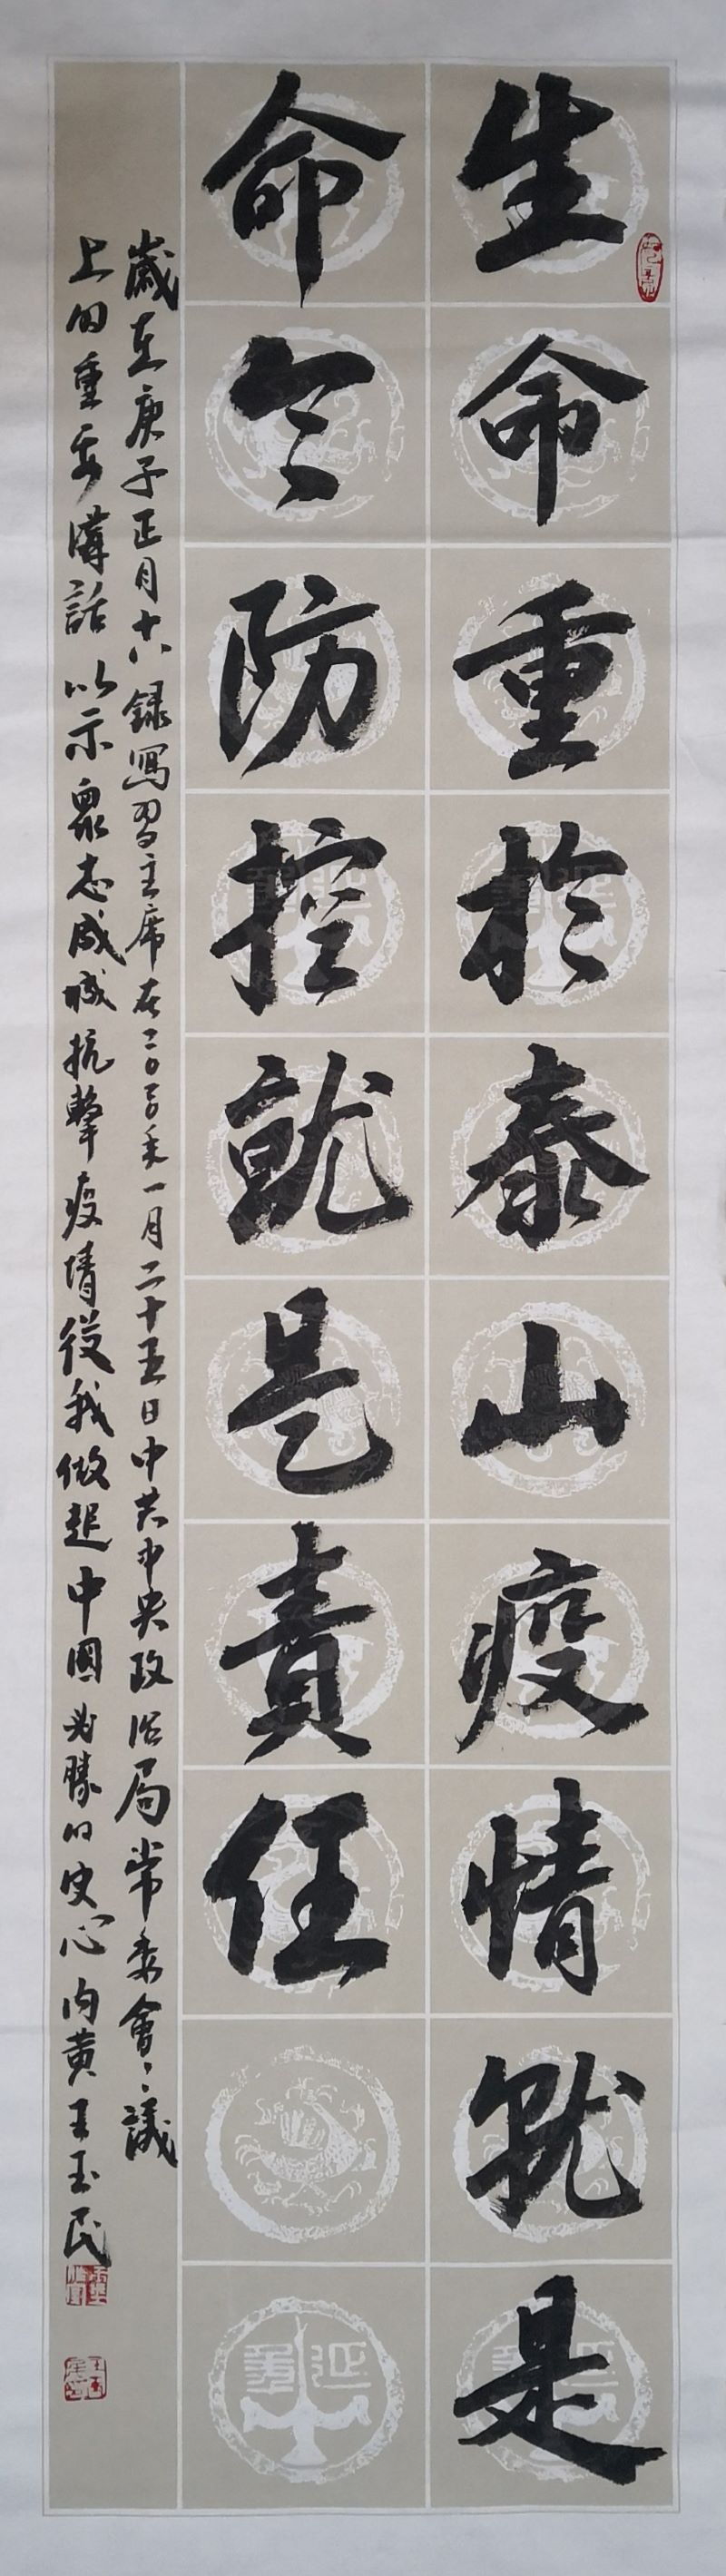 生命重於泰山疫情就是
命令防控就是責任
歲在庚子正月十八録寫習主席在二〇二〇年一月二十五日中共中央政治局常委會議
上的重要講話以示衆志成城抗擊疫情從我做起中國必勝的决心内黄王玉民
延年